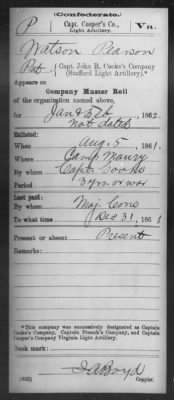 (Confederate.)
P
Capt. Cooper's Co.,
Light Artillery.
Va.
Watson Pearson
Pvt
Capt. John R. Cooke's Company
(Stafford Light Artillery).
Appears on
Company Muster Roll
of the organization named above,
for Jan & Feb, 1862.
not dated
Enlisted:
When Aug. 5, 1861.
Where Camp Maury
By whom Capt. Cooke
Period 3 yrs. or war
Last paid:
By whom Maj. Cone
To what time Dec 31, 1861
Present or absent Present
Remarks:
*This company was successively designated as Captain
Cooke's Company, Captain French's Company, and Captain
Cooper's Company Virginia Light Artillery.
Book mark:
(642)
J A Boyd
Copyist.